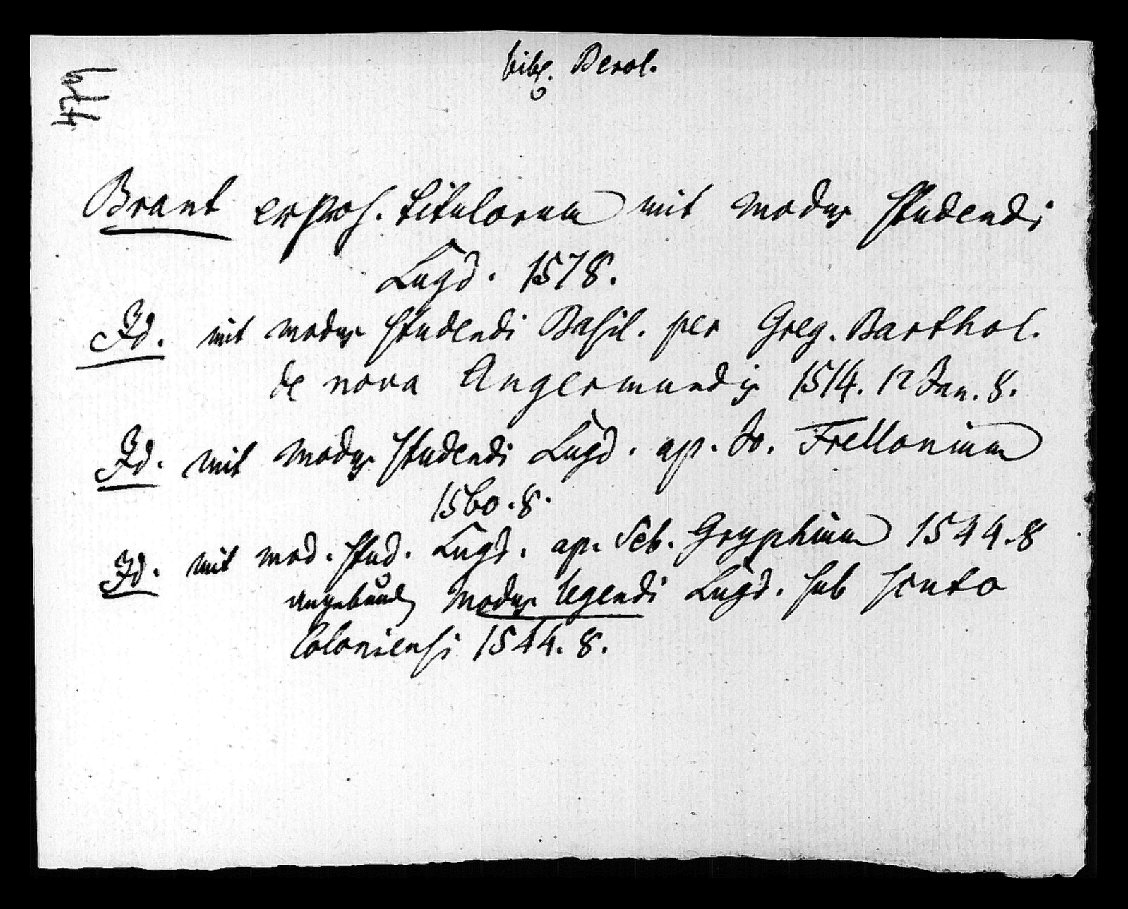 bibl. Berol.
479
Brant exposs. titulorum mit modus studendi
Lugd. 1578.
Id. mit modus studendi Basil. per Greg. Barthol.
de nova Angermundis 1514. 12 Jan. 8.
Id. mit modus studendi Lugd. ap. Jo. Frellonium
1560. 8.
Id. mit mod. stud. Lugd. ap. Seb. Gryphium 1544. 8
angebunden Modus legendi Lugd. sub scuto
Coloniensi 1544. 8.